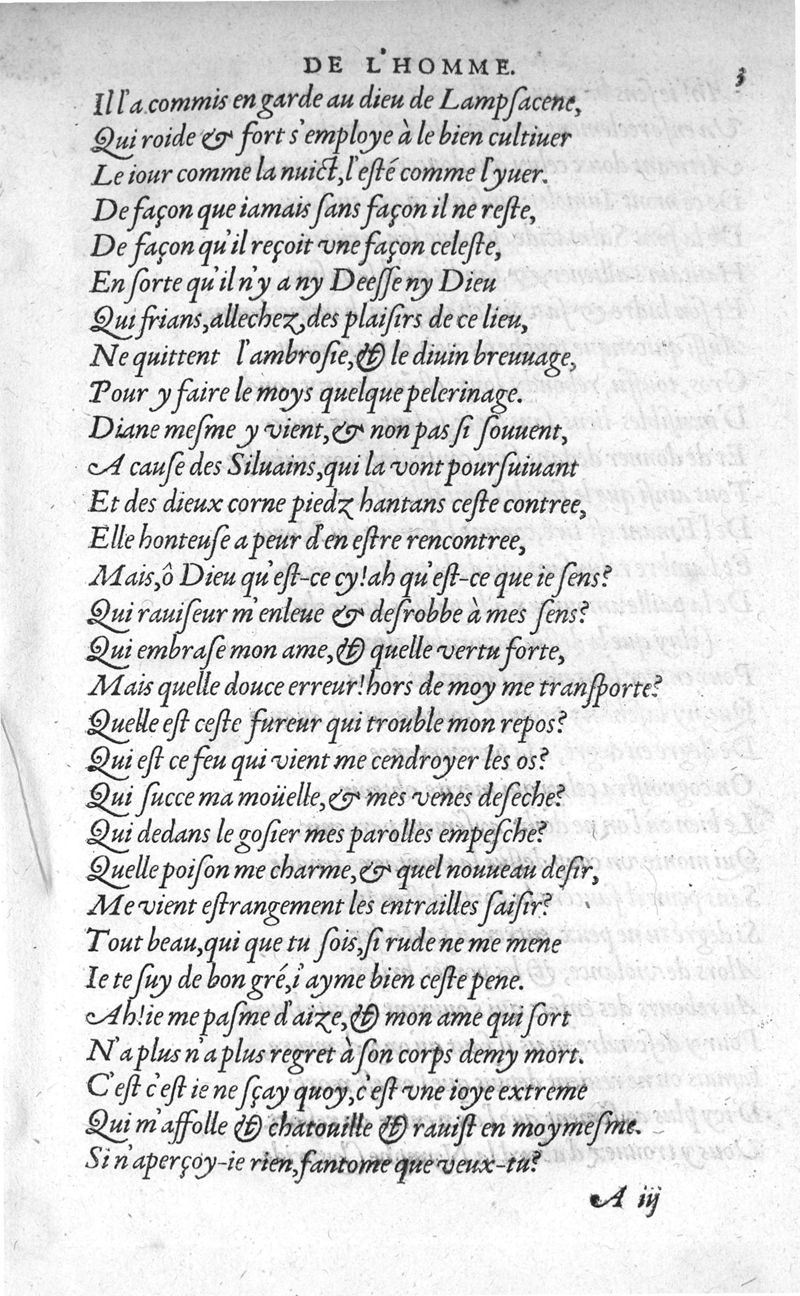 DE L'HOMME. 3
Il l'a commis en garde au dieu de Lampſacene,
Qui roide & fort s'employe à le bien cultiuer
Le iour comme la nuict, l'eſté comme l'yuer.
De façon que iamais ſans façon il ne reſte,
De façon qu'il reçoit vne façon celeſte,
En ſorte qu'il n'y a ny Deeſſe ny Dieu
Qui frians, allechez, des plaiſirs de ce lieu,
Ne quittent l'ambroſie, & le diuin breuuage,
Pour y faire le moys quelque pelerinage.
Diane meſme y vient, & non pas ſi ſouuent,
A cauſe des Siluains, qui la vont pourſuiuant
Et des dieux corne piedz hantans ceſte contree,
Elle honteuſe a peur d'en eſtre rencontree,
Mais, ô Dieu qu'eſt-ce cy! ah qu'eſt-ce que ie ſens?
Qui rauiſeur m'enleue & deſrobbe à mes ſens?
Qui embraſe mon ame, & quelle vertu forte,
Mais quelle douce erreur! hors de moy me tranſporte?
Quelle eſt ceſte fureur qui trouble mon repos?
Qui eſt ce feu qui vient me cendroyer les os?
Qui ſucce ma moüelle, & mes venes deſeche?
Qui dedans le goſier mes parolles empeſche?
Quelle poiſon me charme, & quel nouueau deſir,
Me vient eſtrangement les entrailles ſaiſir?
Tout beau, qui que tu ſois, ſi rude ne me mene
Ie te ſuy de bon gré, i'ayme bien ceſte pene.
Ah! ie me paſme d'aize, & mon ame qui ſort
N'a plus n'a plus regret à ſon corps demy mort.
C'eſt c'eſt ie ne ſçay quoy, c'eſt vne ioye extreme
Qui m'affolle & chatouille & rauiſt en moymeſme.
Si n'aperçoy-ie rien, fantome que veux-tu?
A iij